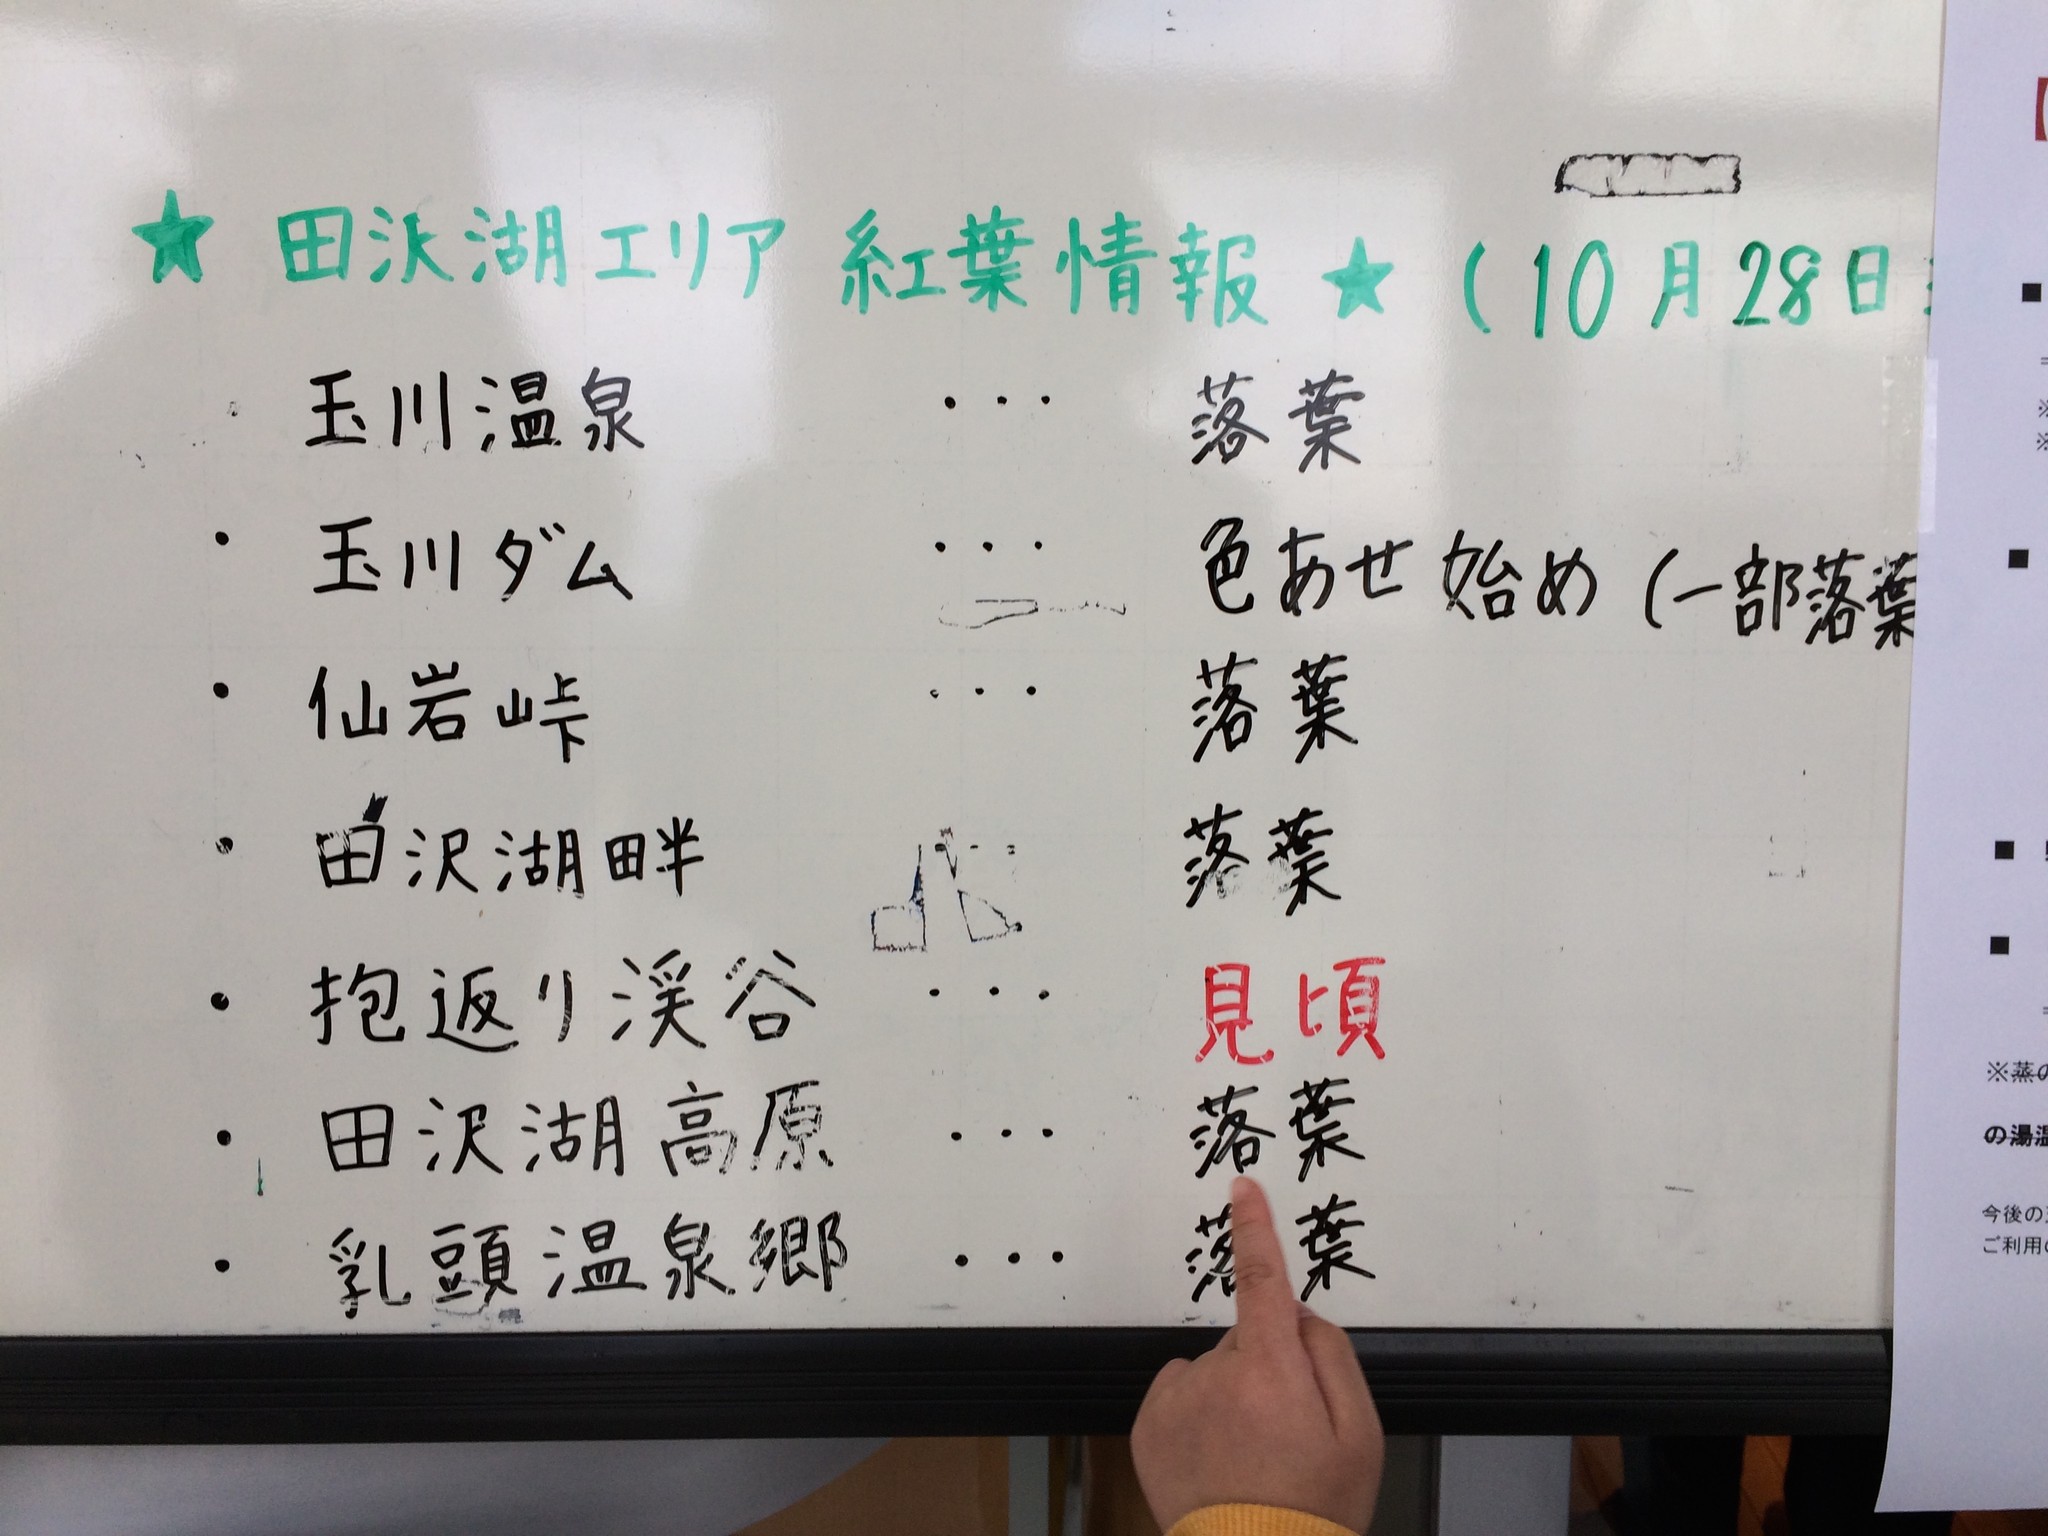 ★ 田沢湖エリア 紅葉情報 ★ (10月28日
玉川温泉 ・・・ 落葉
・ 玉川ダム ・・・ 色あせ始め (一部落葉
・ 仙岩峠 ・・・ 落葉
・ 田沢湖畔 落葉
・ 抱返り渓谷 ・・・ 見頃
・ 田沢湖高原 ・・・ 落葉
・ 乳頭温泉郷 ・・・ 落葉
【
■
※
※
■
■
■
※蒸の
の湯温
今後の
ご利用の